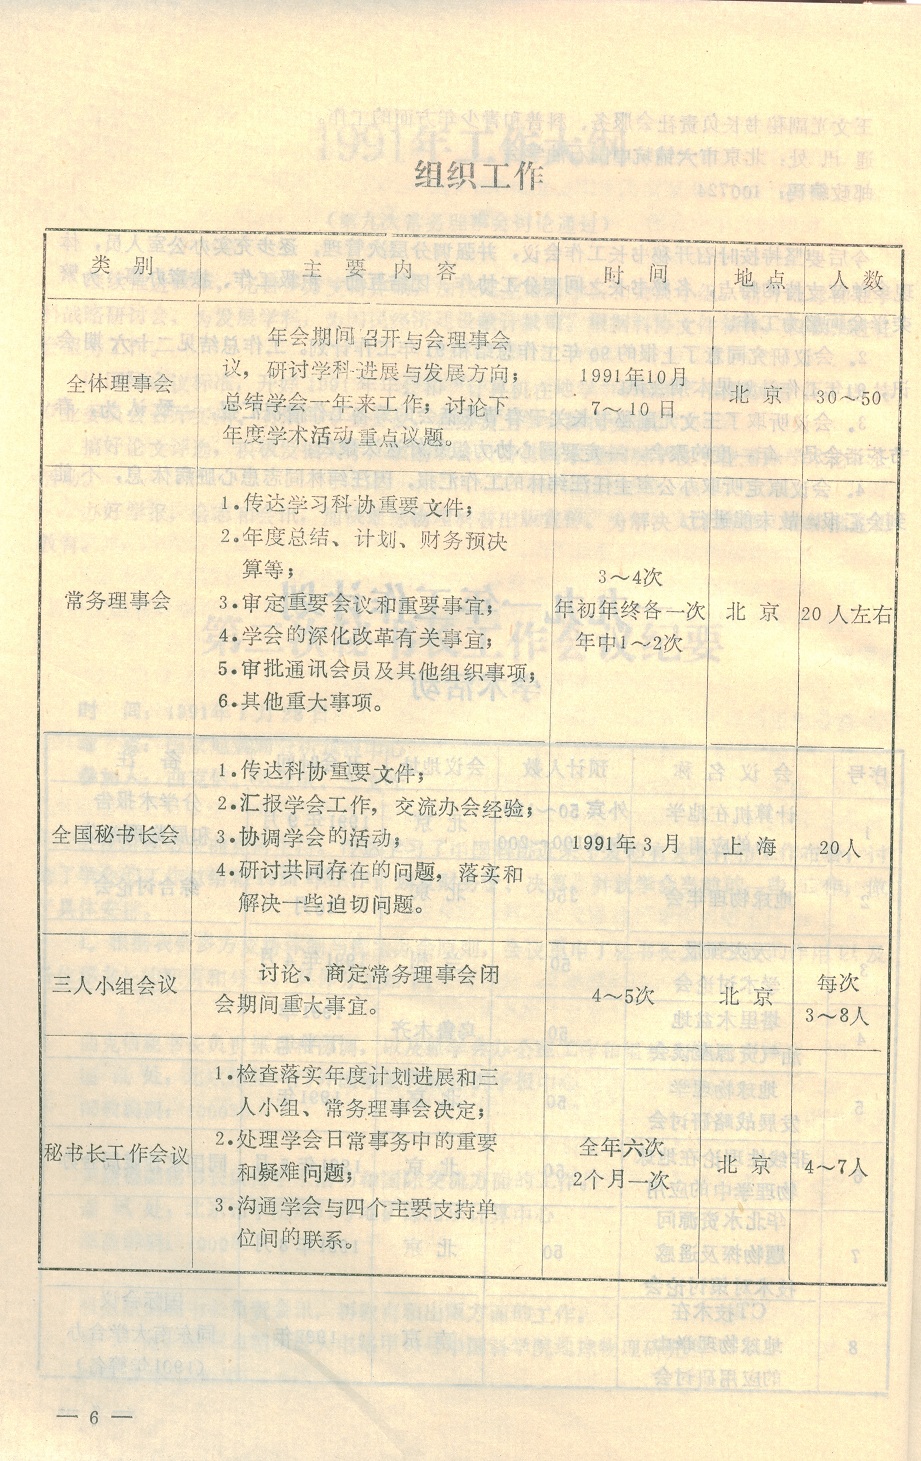 组织工作
类 别 主 要 内 容 时 间 地 点 人 数
全体理事会
年会期间召开与会理事会
议，研讨学科进展与发展方向；
总结学会一年来工作；讨论下
年度学术活动重点议题。
1991年10月
7～10日
北 京
30～50
常务理事会
1.传达学习科协重要文件；
2.年度总结、计划、财务预决
算等；
3.审定重要会议和重要事宜；
4.学会的深化改革有关事宜；
5.审批通讯会员及其他组织事项；
6.其他重大事项。
3～4次
年初年终各一次
年中1～2次
北 京
20人左右
全国秘书长会
1.传达科协重要文件；
2.汇报学会工作，交流办会经验；
3.协调学会的活动；
4.研讨共同存在的问题，落实和
解决一些迫切问题。
1991年3月
上 海
20人
三人小组会议
讨论、商定常务理事会闭
会期间重大事宜。
4～5次
北 京
每次
3～8人
秘书长工作会议
1.检查落实年度计划进展和三
人小组、常务理事会决定；
2.处理学会日常事务中的重要
和疑难问题；
3.沟通学会与四个主要支持单
位间的联系。
全年六次
2个月一次
北 京
4～7人
— 6 —